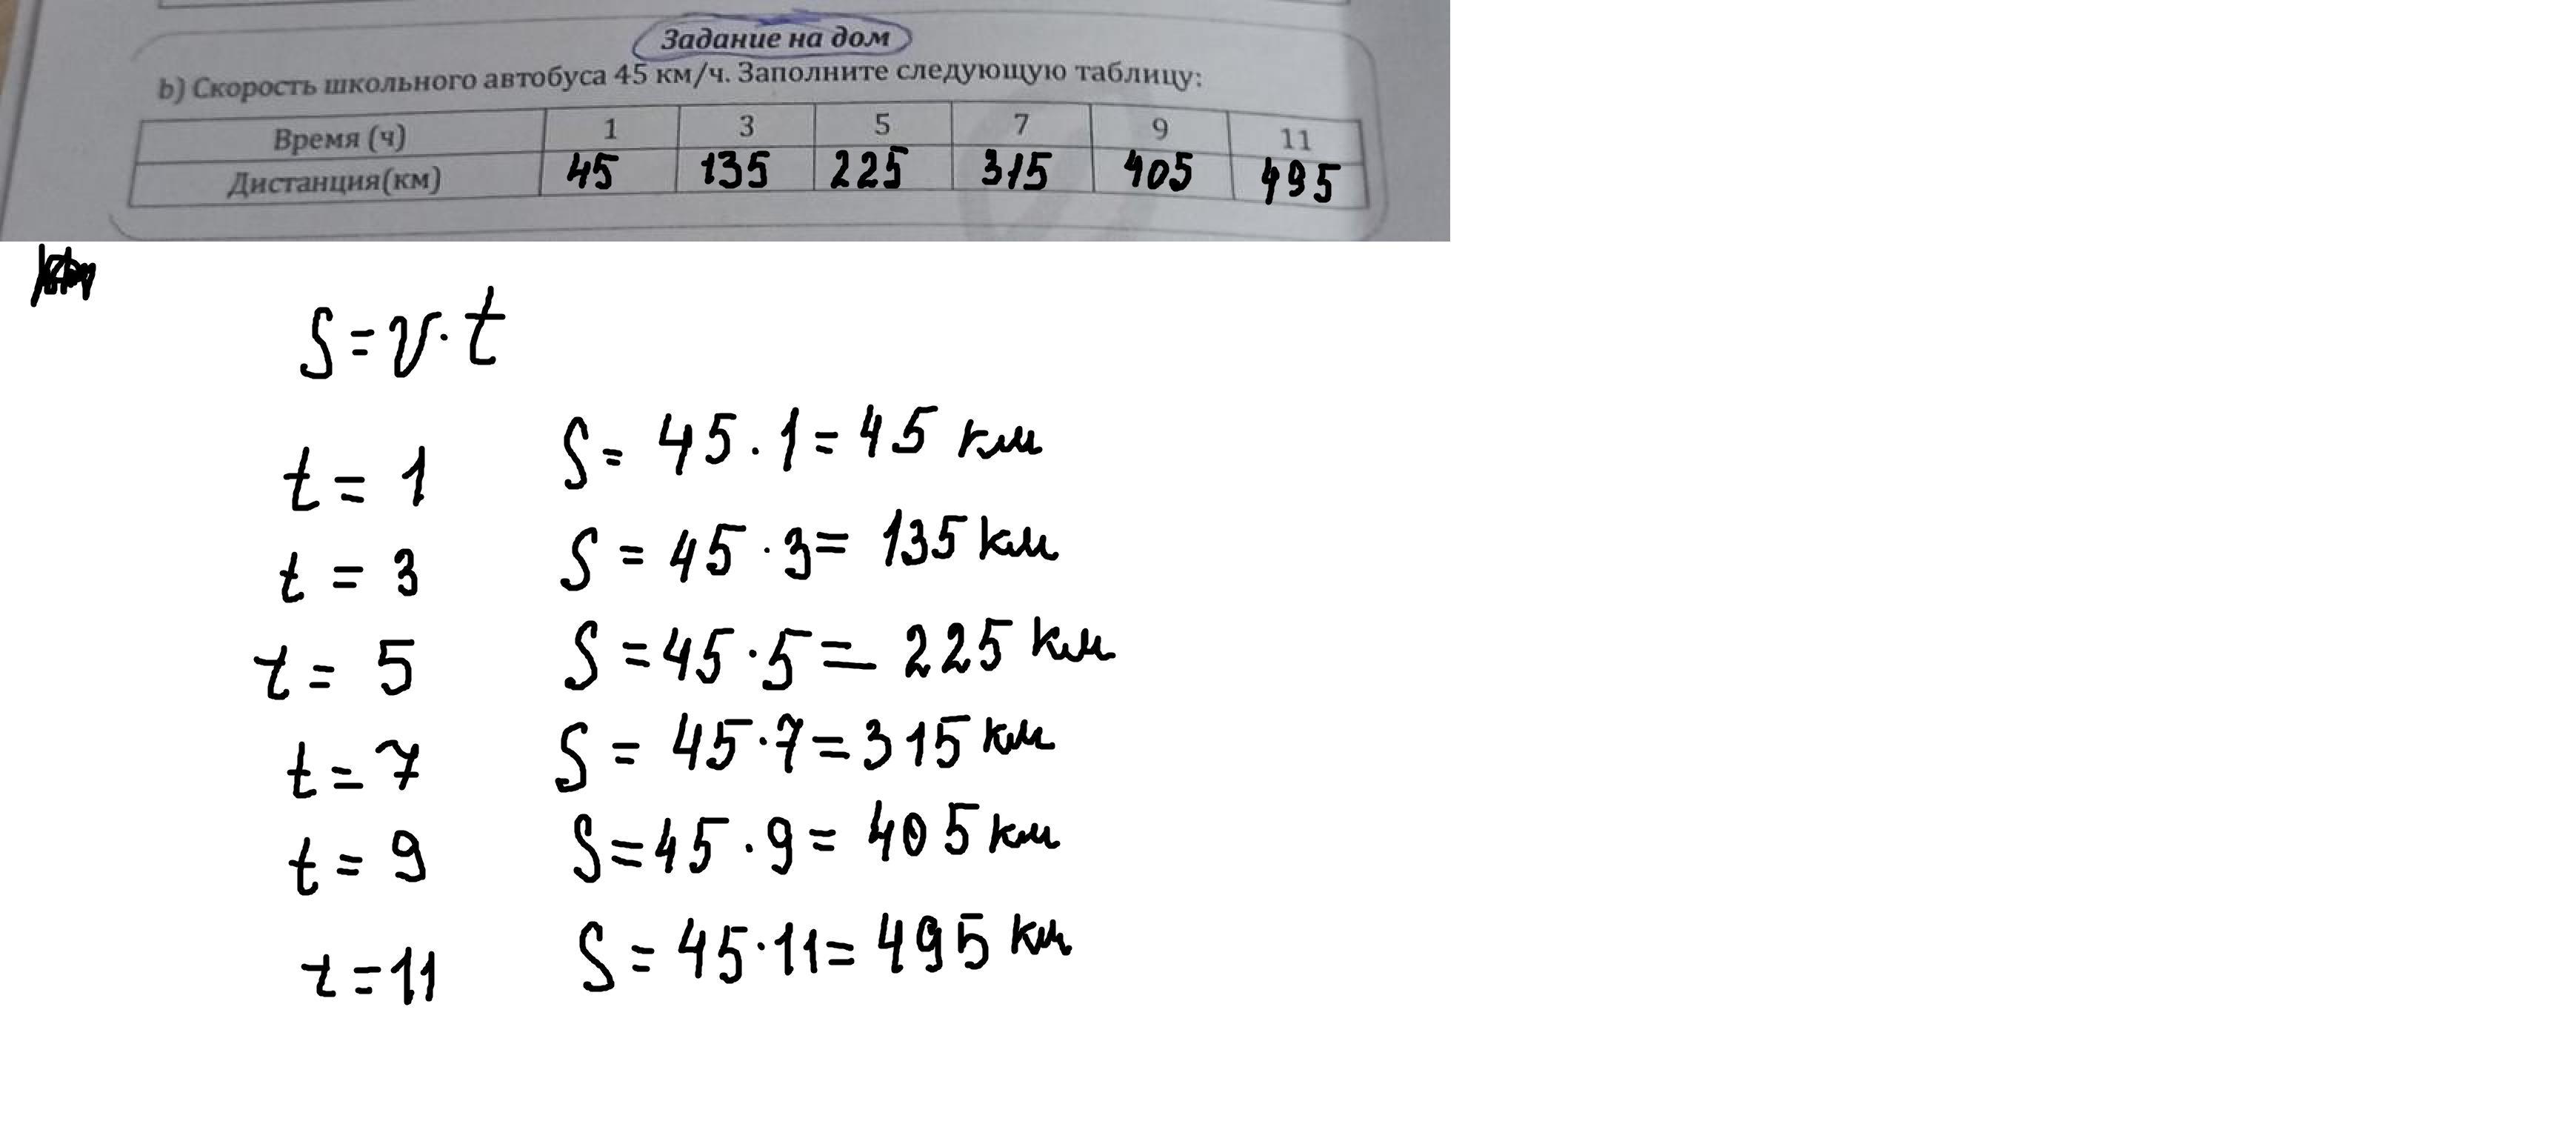 Задание на дом
b) Скорость школьного автобуса 45 км/ч. Заполните следующую таблицу:
Время (ч) 1 3 5 7 9 11
Дистанция(км) 45 135 225 315 405 495
S = v · t
t = 1 S = 45 · 1 = 45 км
t = 3 S = 45 · 3 = 135 км
t = 5 S = 45 · 5 = 225 км
t = 7 S = 45 · 7 = 315 км
t = 9 S = 45 · 9 = 405 км
t = 11 S = 45 · 11 = 495 км